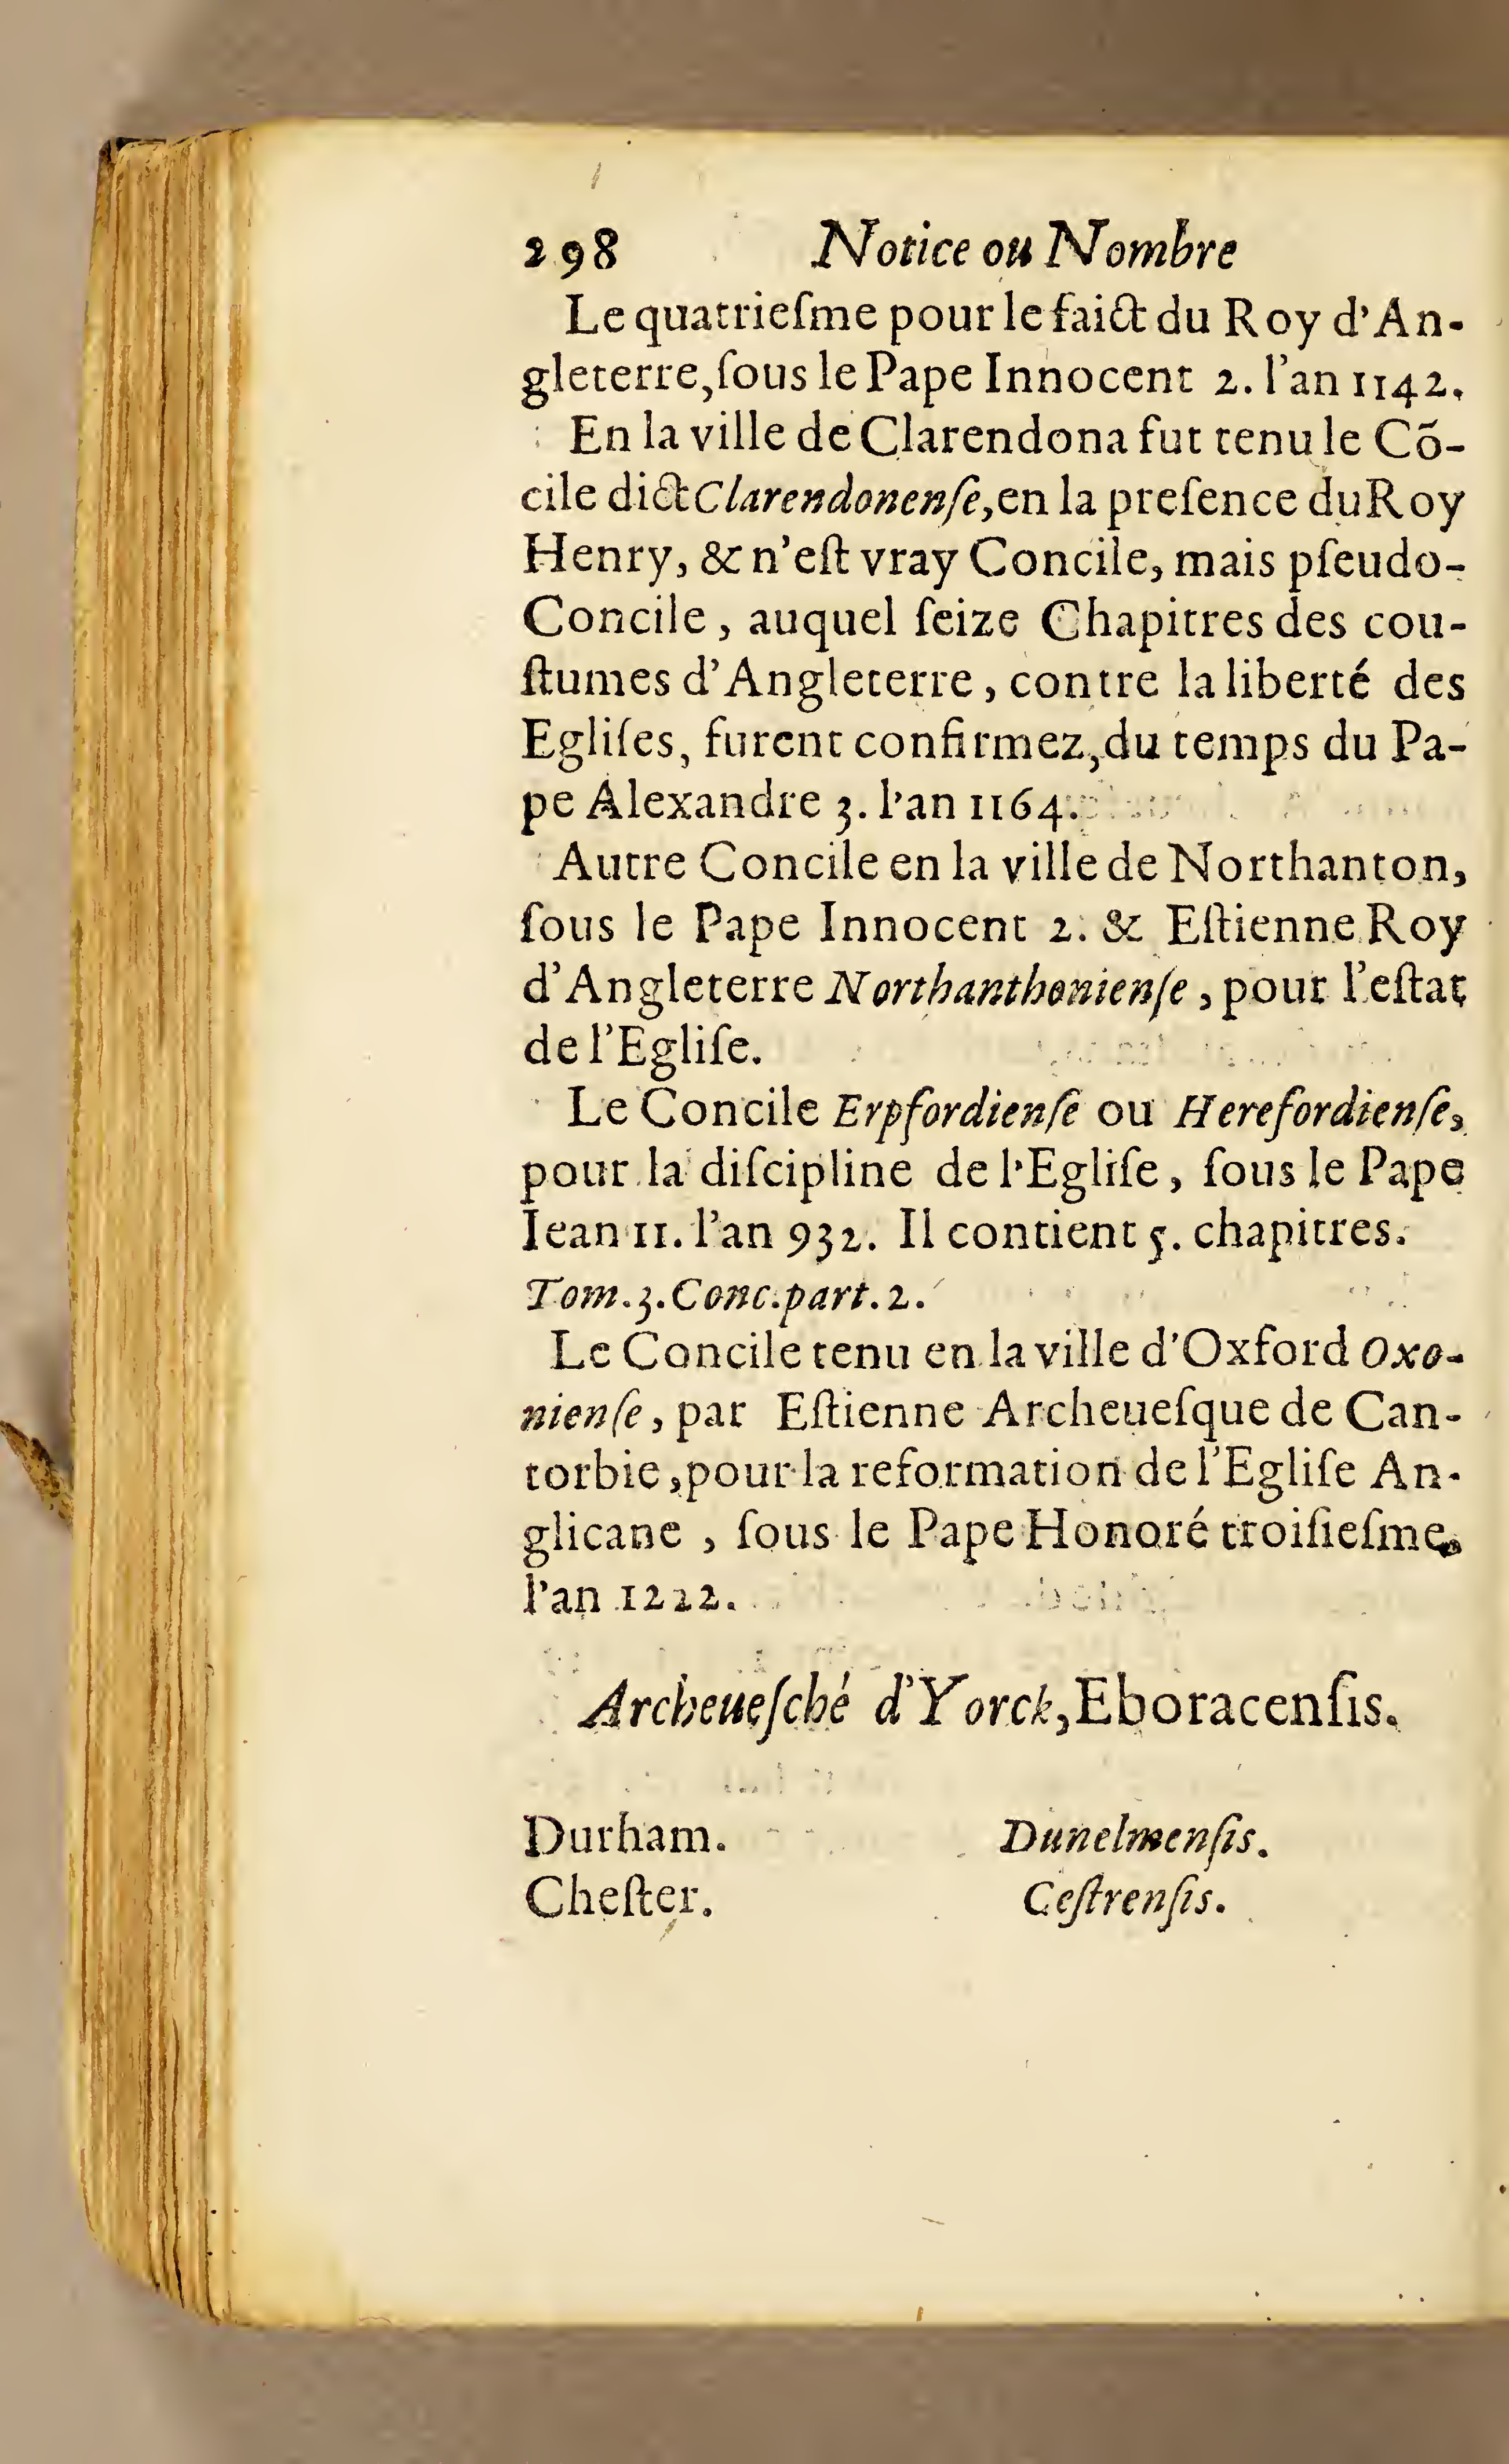 298 Notice ou Nombre
Le quatrieſme pour le faict du Roy d'An-
gleterre, ſous le Pape Innocent 2. l'an 1142.
En la ville de Clarendona fut tenu le Cõ-
cile dict Clarendonenſe, en la preſence du Roy
Henry, & n'eſt vray Concile, mais pſeudo-
Concile, auquel ſeize Chapitres des cou-
ſtumes d'Angleterre, contre la liberté des
Egliſes, furent confirmez, du temps du Pa-
pe Alexandre 3. l'an 1164.
Autre Concile en la ville de Northanton,
ſous le Pape Innocent 2. & Eſtienne Roy
d'Angleterre Northanthonienſe, pour l'eſtat
de l'Egliſe.
Le Concile Erpfordienſe ou Herefordienſe,
pour la diſcipline de l'Egliſe, ſous le Pape
Iean 11. l'an 932. Il contient 5. chapitres.
Tom. 3. Conc. part. 2.
Le Concile tenu en la ville d'Oxford Oxo-
nienſe, par Eſtienne Archeueſque de Can-
torbie, pour la reformation de l'Egliſe An-
glicane, ſous le Pape Honoré troiſieſme,
l'an 1222.
Archeueſché d'Yorck, Eboracenſis.
Durham. Dunelmenſis.
Cheſter. Ceſtrenſis.